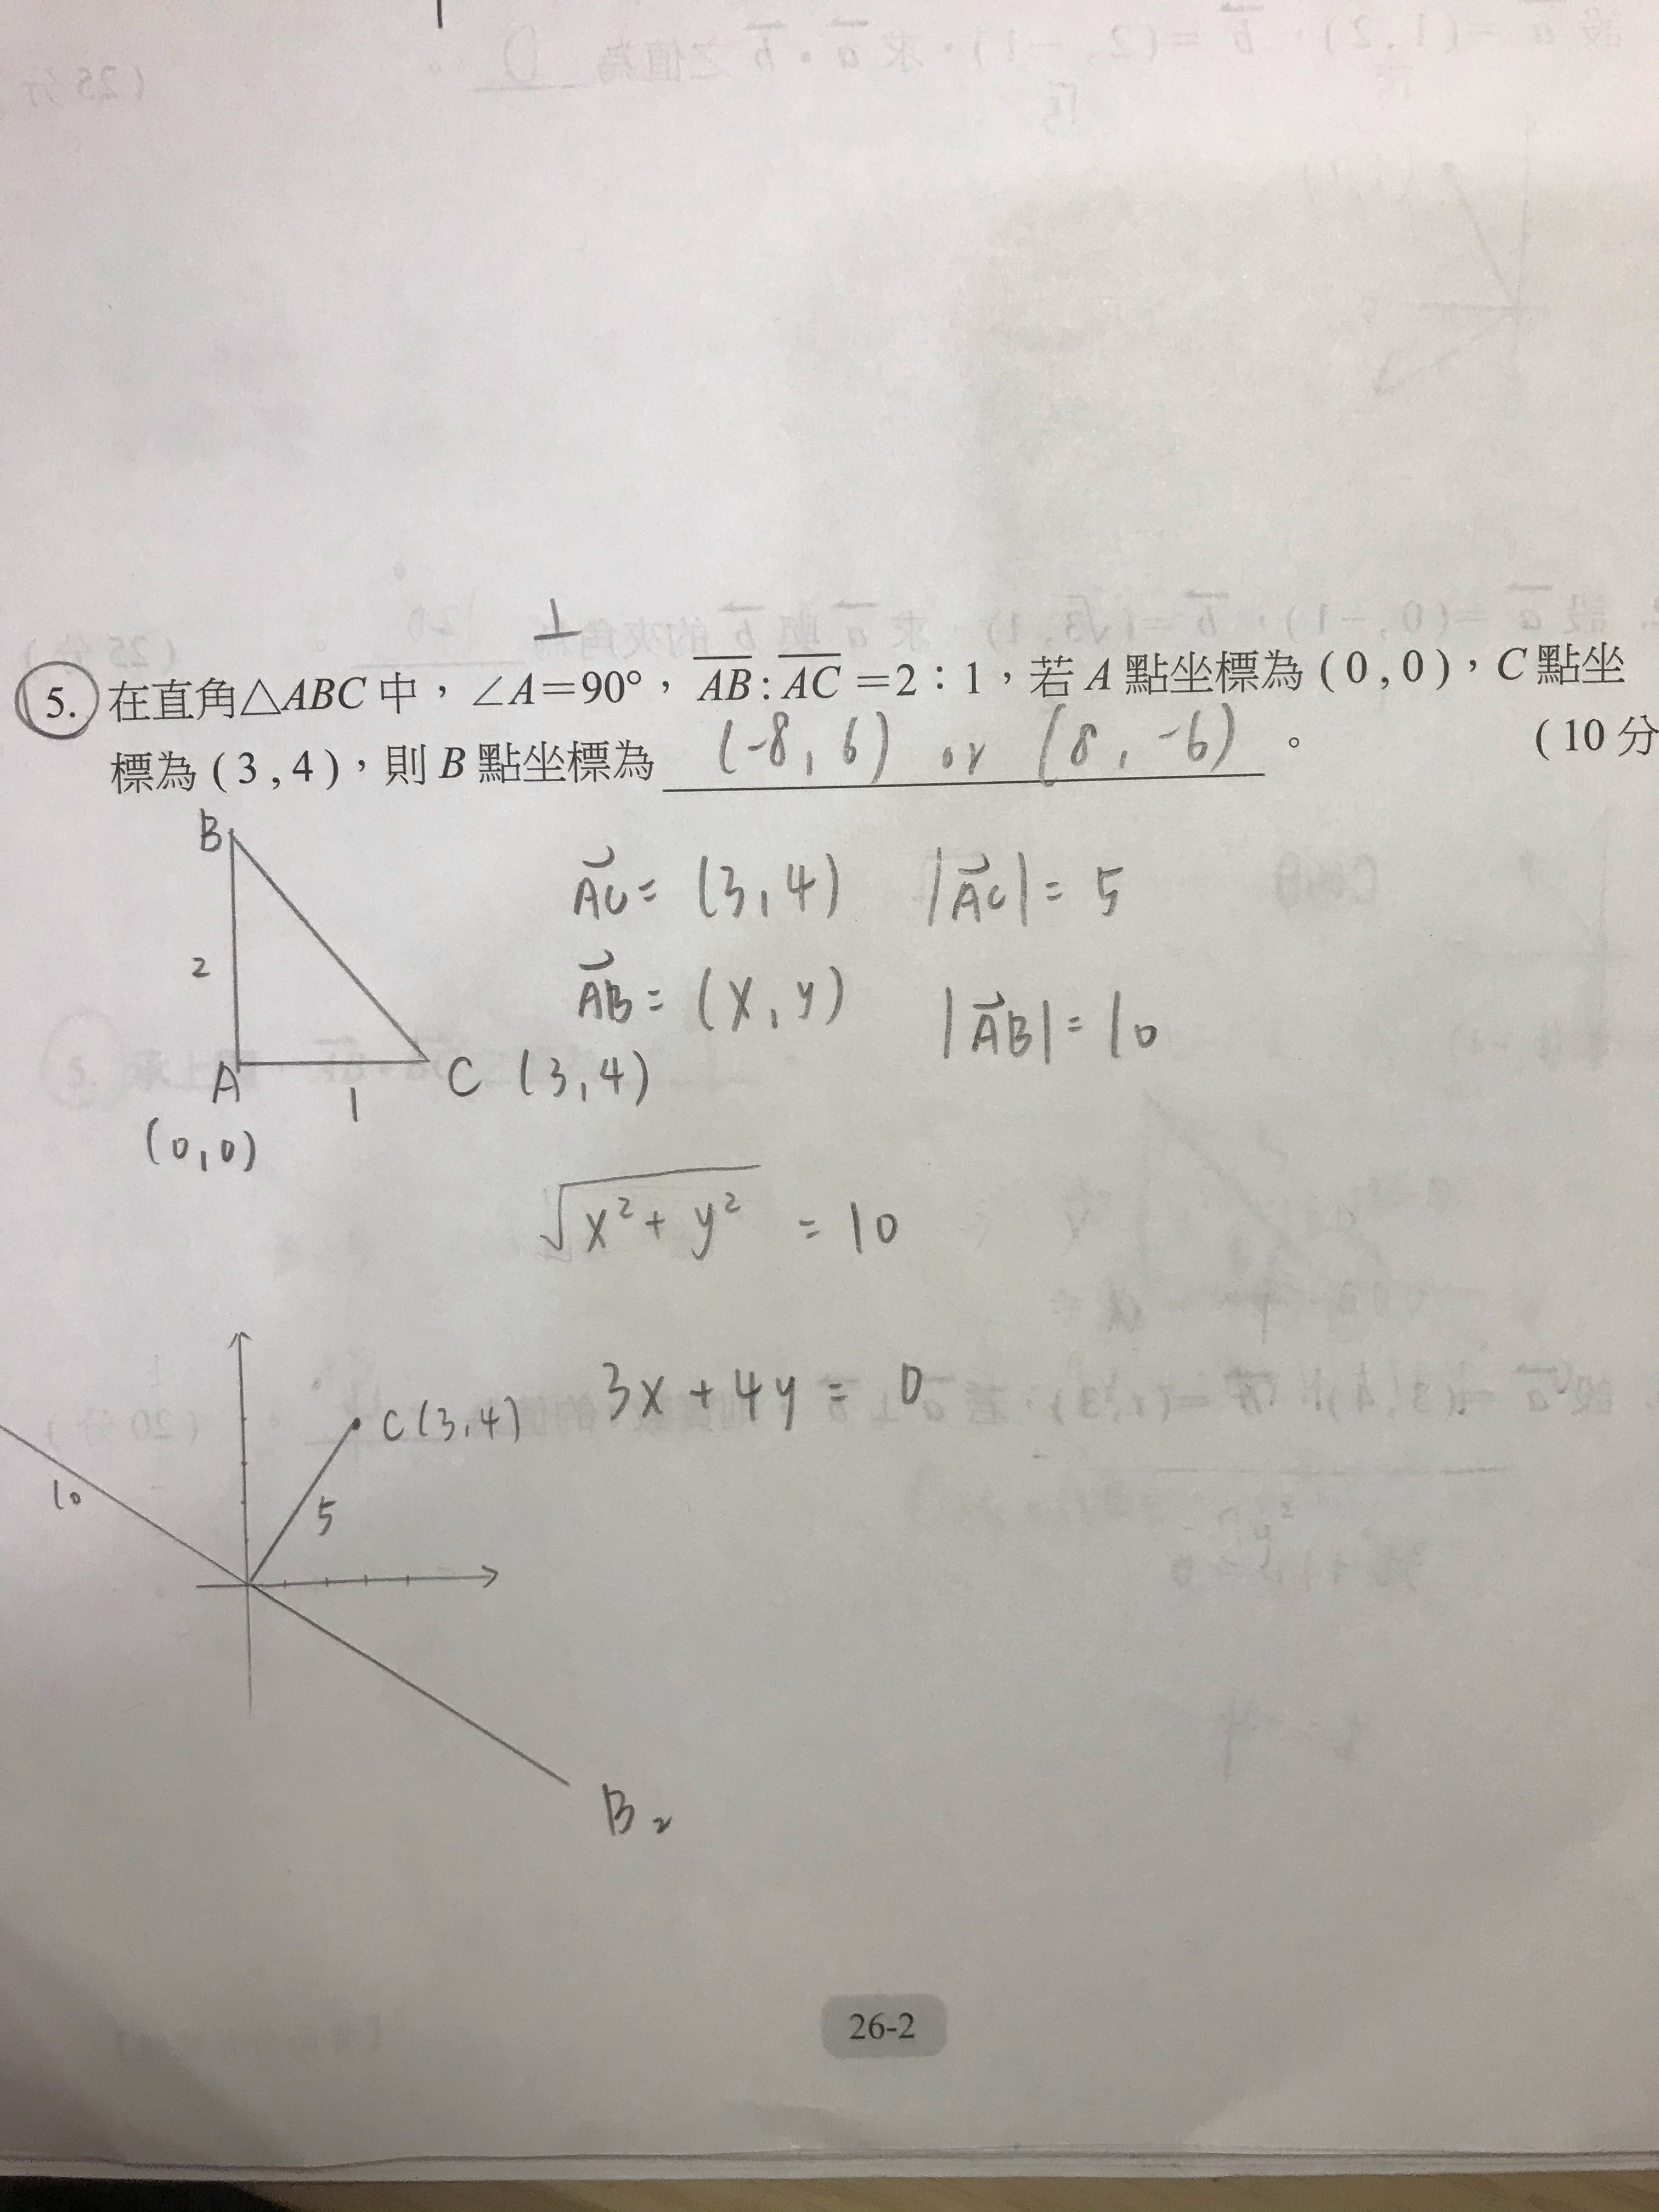 ⊥
5. 在直角△ABC 中，∠A＝90°，AB : AC ＝2：1，若 A 點坐標為 ( 0 , 0 )，C 點坐
標為 ( 3 , 4 )，則 B 點坐標為 (-8, 6) or (8, -6) 。 ( 10 分
B
2
A
1
C (3,4)
(0,0)
AC = (3,4) |AC| = 5
AB = (x,y) |AB| = 10
√x²+y² = 10
3x + 4y = 0
C(3,4)
10
5
B₂
26-2